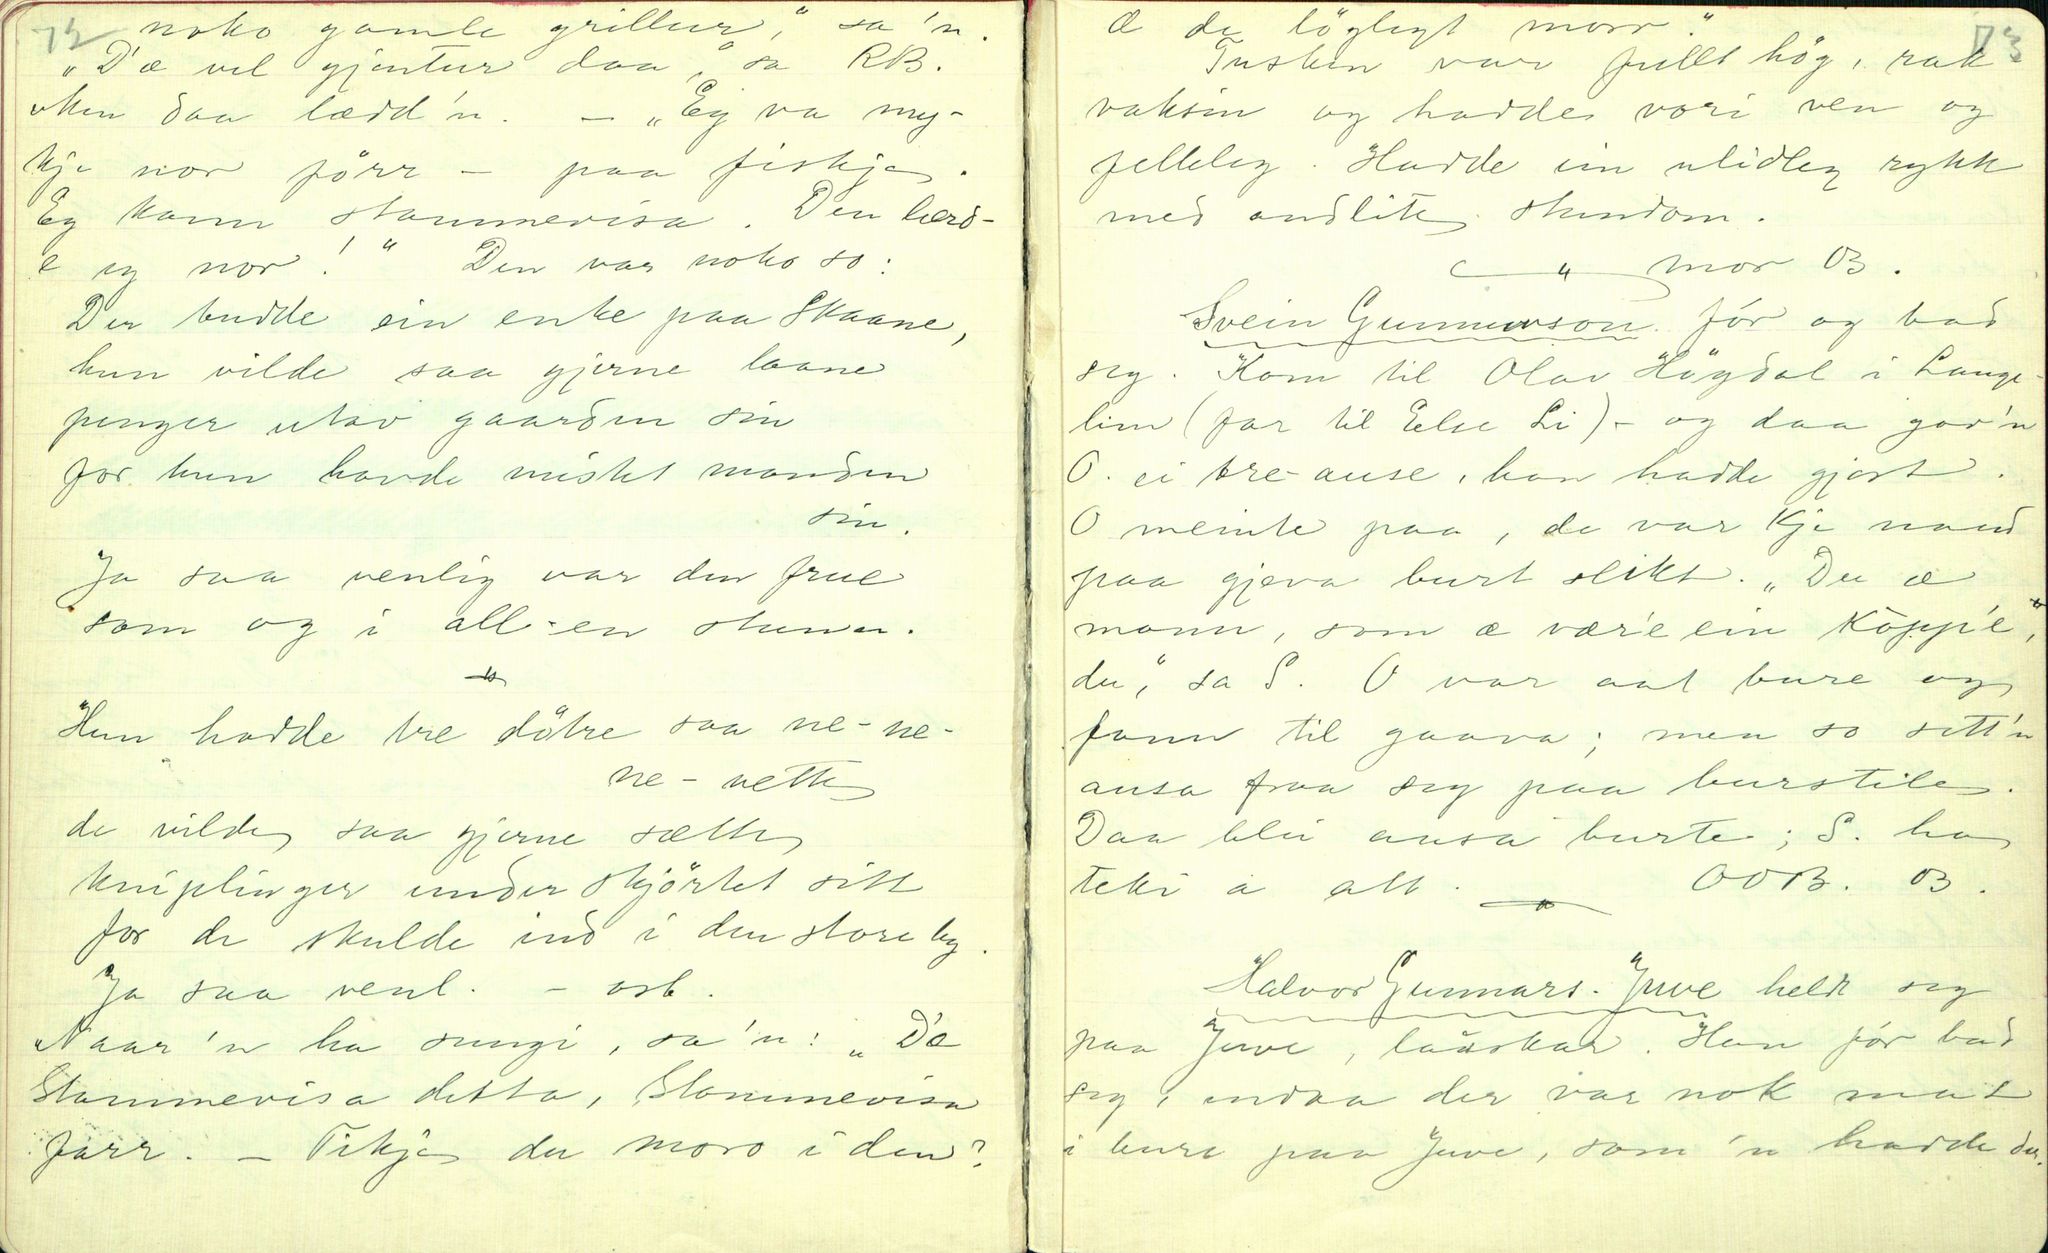 72
noko gamle grillur," sa 'n.
"D'æ vel gjentur daa," sa RB.
aken daa lædd'n. — "Eg va my-
kje nor förr — paa fiskje.
Eg kann stammevisa. Den lærd-
e eg nor!" Den var noko so:
Der budde ein enke paa Skaane,
hun vilde saa gjerne laane
penger utav gaarden sin
for hun havde mistet manden
sin.
Ja saa venlig var den frue
som og i all-en stuva.
Hun hadde tre döttre saa ne-ne-
ne-nette
de vilde saa gjerne sætte
kniplinger under skjörtet sitt
for de skulde ind i den store by.
Ja saa venl. — osb.
Naar 'n ha sungi, sa 'n: "D'æ
Stammevisa detta, Stammevisa
farr. — Tikje du moro i den?
73
æ de löglegt morr."
Tusken var fullt hög, rak
vaksin og hadde vori ven og
felleleg. Hadde ein ulidleg rykk
med andlite stundom.
" mor OB.
Svein Gunnurson fór og bad
seg. Kom til Olav Högdal i Lauge-
lim (far til Else Li) – og daa gav'n
O. ei tre-ause, han hadde gjort.
O meinte paa, de var kje naud
paa gjeva burt slikt. "Du æ
mann, som æ vær'e ein Köpp'e,
du," sa S. O var aat bure og
fann til gaava; men so sett'n
ausa fraa seg paa burstile.
Daa blei ausa burte; S. ha
teki a att. OOB. OB.
Halvor Gunnars. Juve heldt seg
paa Juve, lauskar. Han fór bad
seg, endaa der var nok mat
i bure paa Juve, som 'n hadde der.